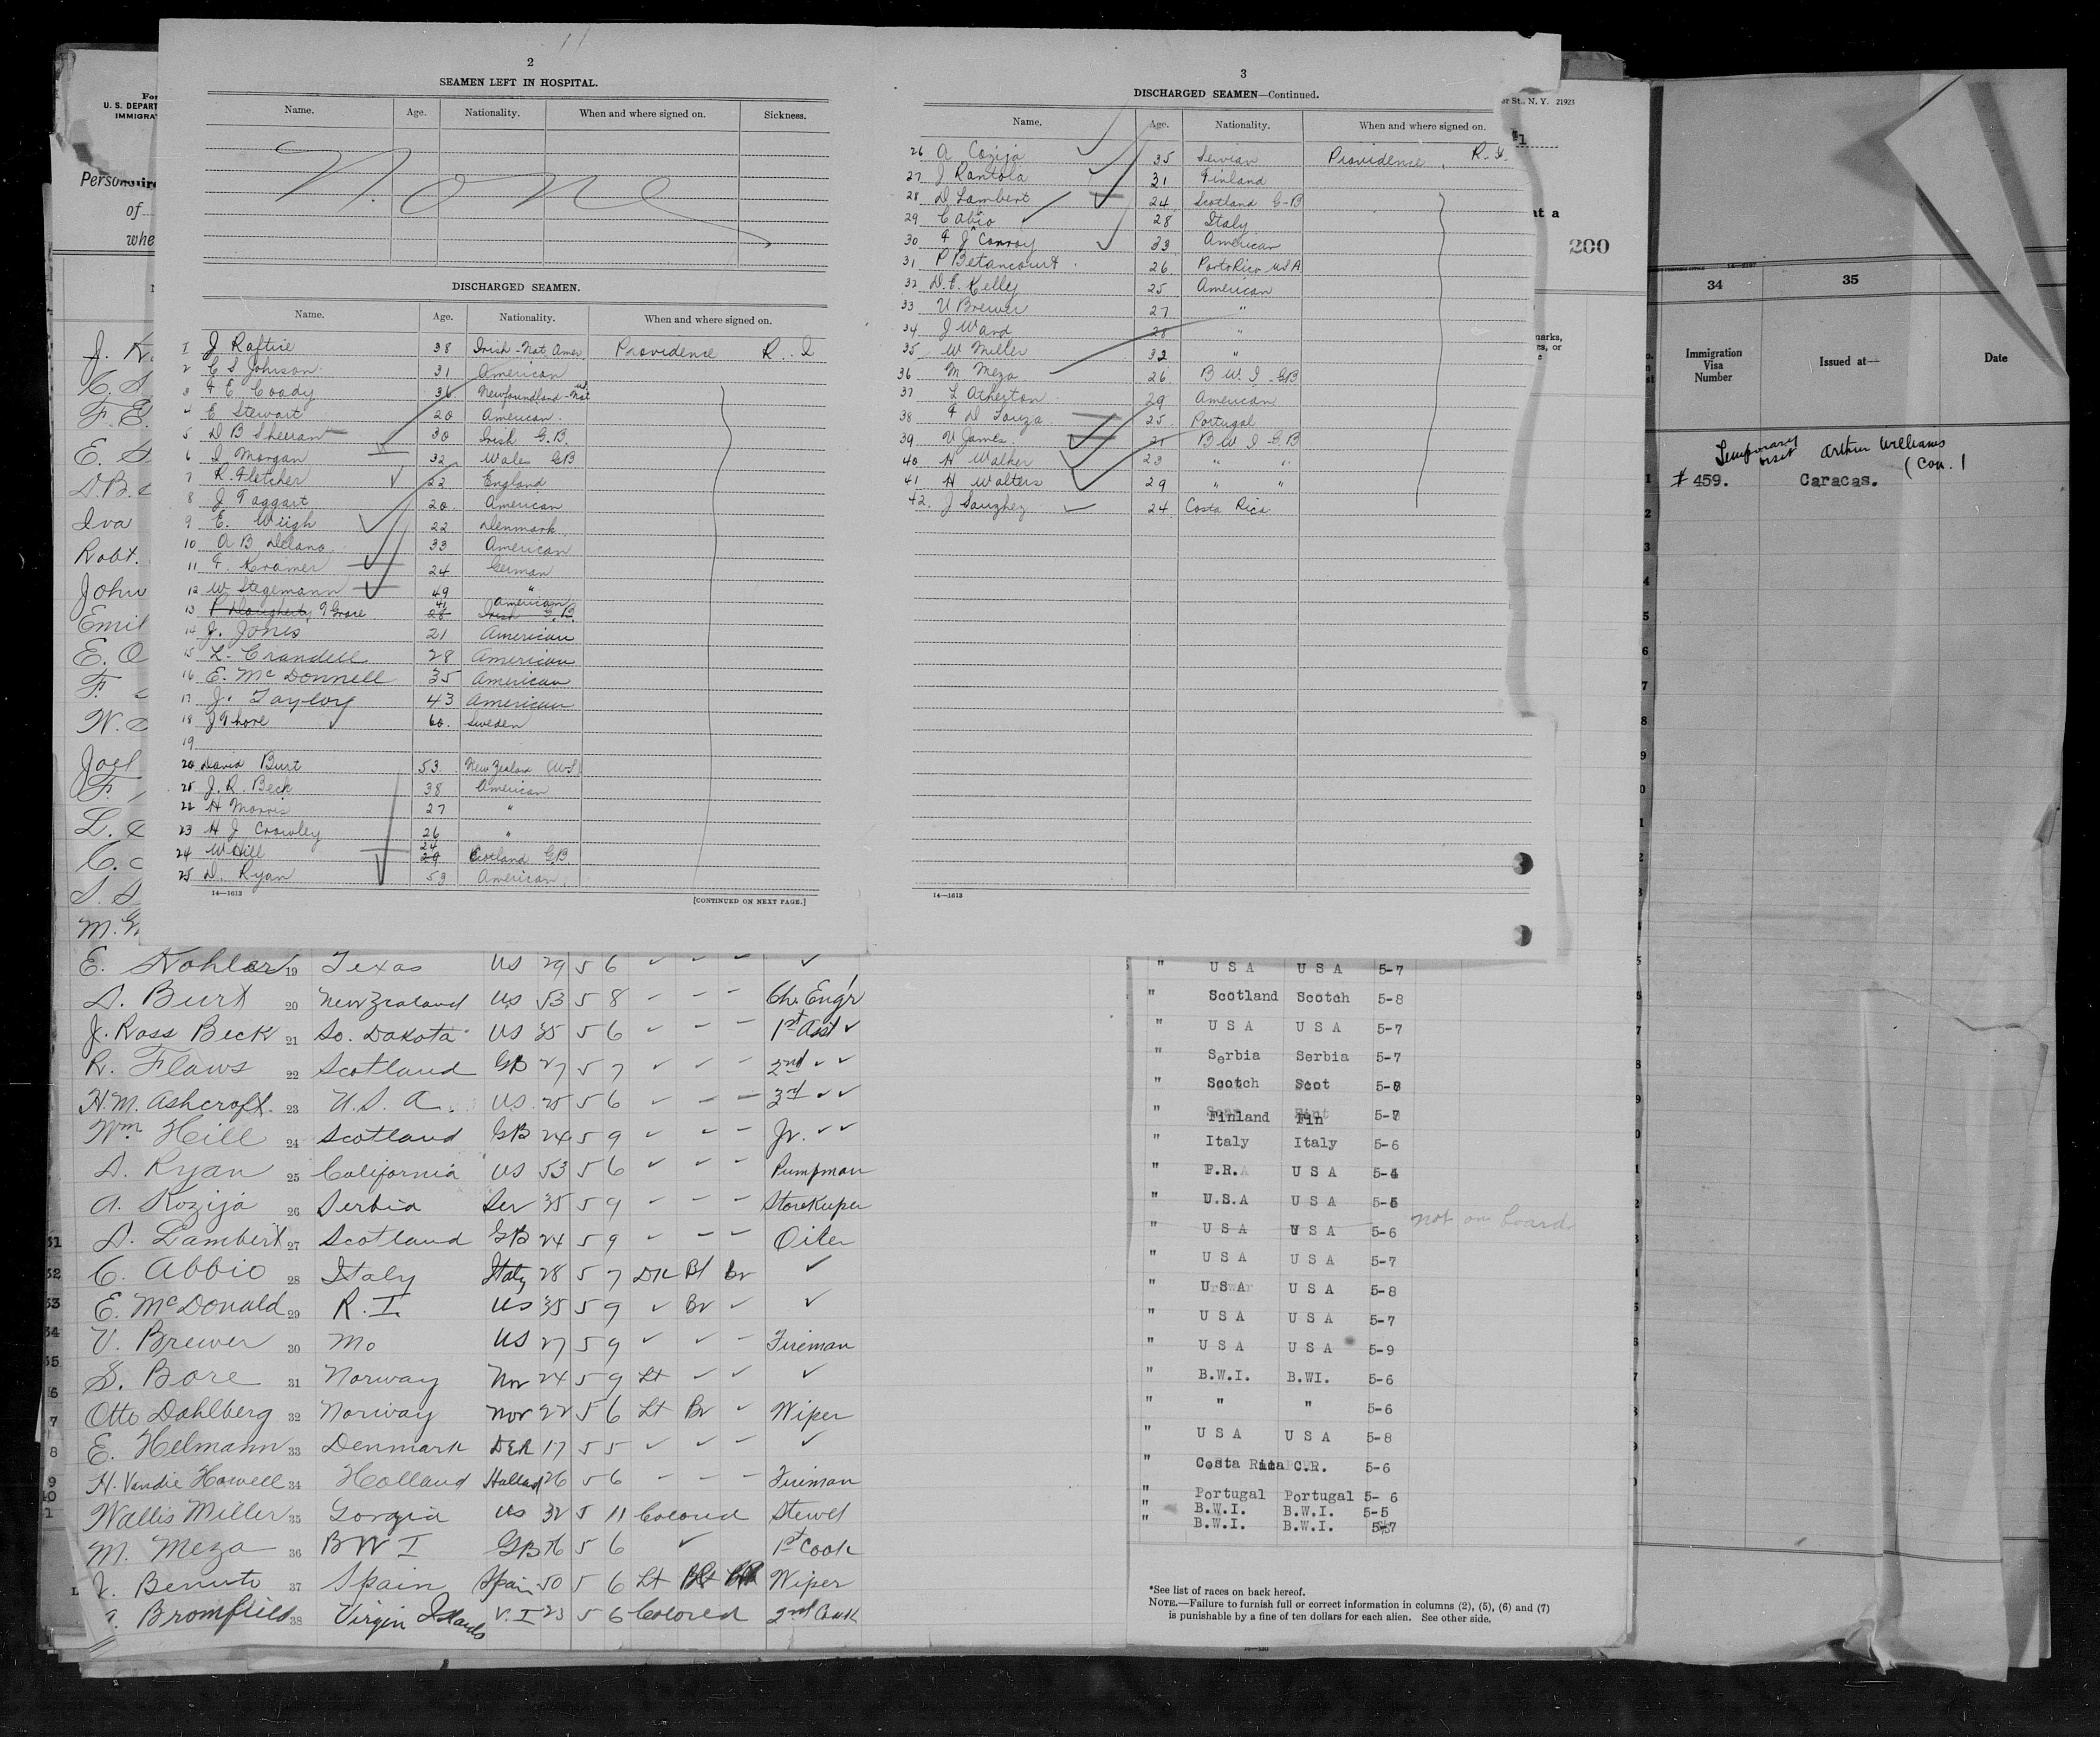 2
SEAMEN LEFT IN HOSPITAL.
Name. Age. Nationality. When and where signed on. Sickness.
None
DISCHARGED SEAMEN.
Name. Age. Nationality. When and where signed on.
1 J Raftice 38 Irish-Nat Amer Providence R. I
2 C S Johnson 31 American
3 F E Coady 36 Newfoundland-Nat
4 E Stewart 20 American
5 D B Sherran 30 Irish G.B.
6 I Morgan 32 Wales GB
7 R. Fletcher 22 England
8 J Taggart 20 American
9 E. Weigh 22 Denmark
10 A B Delano 33 American
11 F. Kramer 24 German
12 W Stegemann 49 "
13 P Daugherty F Grace 28 41 Irish G.B. American
14 J. Jones 21 American
15 L. Crandell 28 American
16 E. McDonnell 35 American
17 J. Taylor 43 American
18 J Thore 60. Sweden
19
20 David Burt 53 New Zealand
21 J. R. Beck 38 American
22 H Morris 27 "
23 H J Crowley 26 "
24 W Hill 29 24 Scotland G.B
25 D. Ryan 53 American
14—1613
[CONTINUED ON NEXT PAGE.]
3
DISCHARGED SEAMEN—Continued.
Name. Age. Nationality. When and where signed on.
26 A Cozija 35 Servian Providence, R.I.
27 J Rantola 31 Finland
28 D Lambert 24 Scotland G-B
29 C Abio 28 Italy
30 F J Conroy 33 American
31 P Betancourt 26 Porto Rico USA
32 D. E. Kelly 25 American
33 V Brewer 27 "
34 J Ward 28 "
35 W Miller 32 "
36 M Meza 26 B W. I - GB
37 L Atherton 29 American
38 F D Souza 25 Portugal
39 V James 21 B W I G B
40 H Walker 23 " "
41 H Walters 29 " "
42. J Saughez 24 Costa Rica
14—1613
er St., N. Y. 21923
200
34 35
Immigration Visa Number Issued at— Date
Temporary visit Arthur Williams (Con.)
1 # 459. Caracas.
For
U. S. DEPART
IMMIGRA
of
whe
E. Kohler 19 Texas US 29 5 6
D. Burt 20 New Zealand US 53 5 8 Ch. Engr
J. Ross Beck 21 So. Dakota US 35 5 6 1st Asst
R. Flaws 22 Scotland GB 27 5 7 2nd
H. M. Ashcroft. 23 U. S. A. US. 25 5 6 3rd
Wm Hill 24 Scotland GB 24 5 9 Jr.
D. Ryan 25 California US 53 5 6 Pumpman
A. Kozija 26 Serbia Ser 35 5 9 Storekeeper
D. Lambert 27 Scotland GB 24 5 9 Oiler
C. Abbio 28 Italy Italy 28 5 7 DK Bl Br
E. McDonald 29 R. I. US 35 5 9 Br
V. Brewer 30 Mo US 27 5 9 Fireman
S. Bore 31 Norway Nor 24 5 9 Lt
Otto Dahlberg 32 Norway Nor 22 5 6 Lt Br Wiper
E. Helmann 33 Denmark Den 17 5 5
H. Vandie Howell 34 Holland Holland 26 5 6 Fireman
Wallis Miller 35 Gorgia US 32 5 11 Colored Stewd
M. Meza 36 B W I GB 26 5 6 1st Cook
Benuto 37 Spain Spain 50 5 6 Lt Wiper
Bromfield 38 Virgin Islands V. I 23 5 6 Colored 2nd Cook
" U S A U S A 5-7
" Scotland Scotch 5-8
" U S A U S A 5-7
" Serbia Serbia 5-7
" Scotch Scot 5-8
" Finland Fin 5-7
" Italy Italy 5-6
" P.R. U S A 5-4
" U.S.A U S A 5-6
" U S A U S A 5-6 not on board
" U S A U S A 5-7
" U S A U S A 5-8
" U S A U S A 5-7
" U S A U S A 5-9
" B.W.I. B.WI. 5-6
" " " 5-6
" U S A U S A 5-8
" Costa Rica C.R. 5-6
" Portugal Portugal 5- 6
" B.W.I. B.W.I. 5-5
" B.W.I. B.W.I. 5-7
*See list of races on back hereof.
NOTE.—Failure to furnish full or correct information in columns (2), (5), (6) and (7)
is punishable by a fine of ten dollars for each alien. See other side.